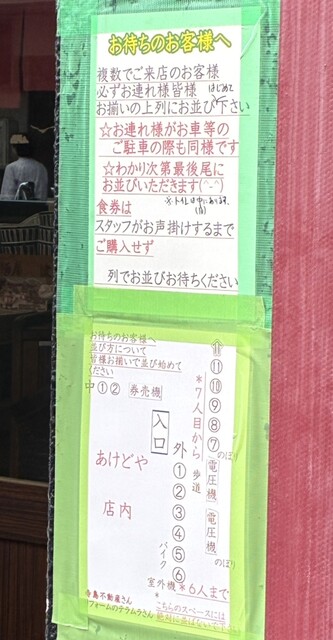 お待ちのお客様へ
複数でご来店のお客様
必ずお連れ様皆様 はじめて
お揃いの上列にお並び下さい
☆お連れ様がお車等の
ご駐車の際も同様です
☆わかり次第最後尾に
お並びいただきます(^-^)
※トイレは中にあります。
食券は
スタッフがお声掛けするまで
ご購入せず
列でお並びお待ちください
お待ちのお客様へ
並び方について
皆様お揃いで並び始めて
ください
中①② 券売機
入口
外
①
②
③
④
⑤
⑥
バイク
室外機
*6人まで
*7人目から
歩道
⑪
⑩
⑨
⑧
⑦
のぼり
電圧機
電圧機
のぼり
あけどや
店内
寺島不動産さん
リフォームのテラムラさん
こちらのスペースには
絶対に並ばないで下さい